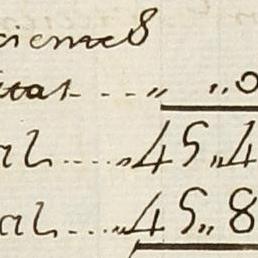 ciemes
itat - - - „ „0
al . . . . „ 45 „ 4
al . . . . „ 45 „ 8